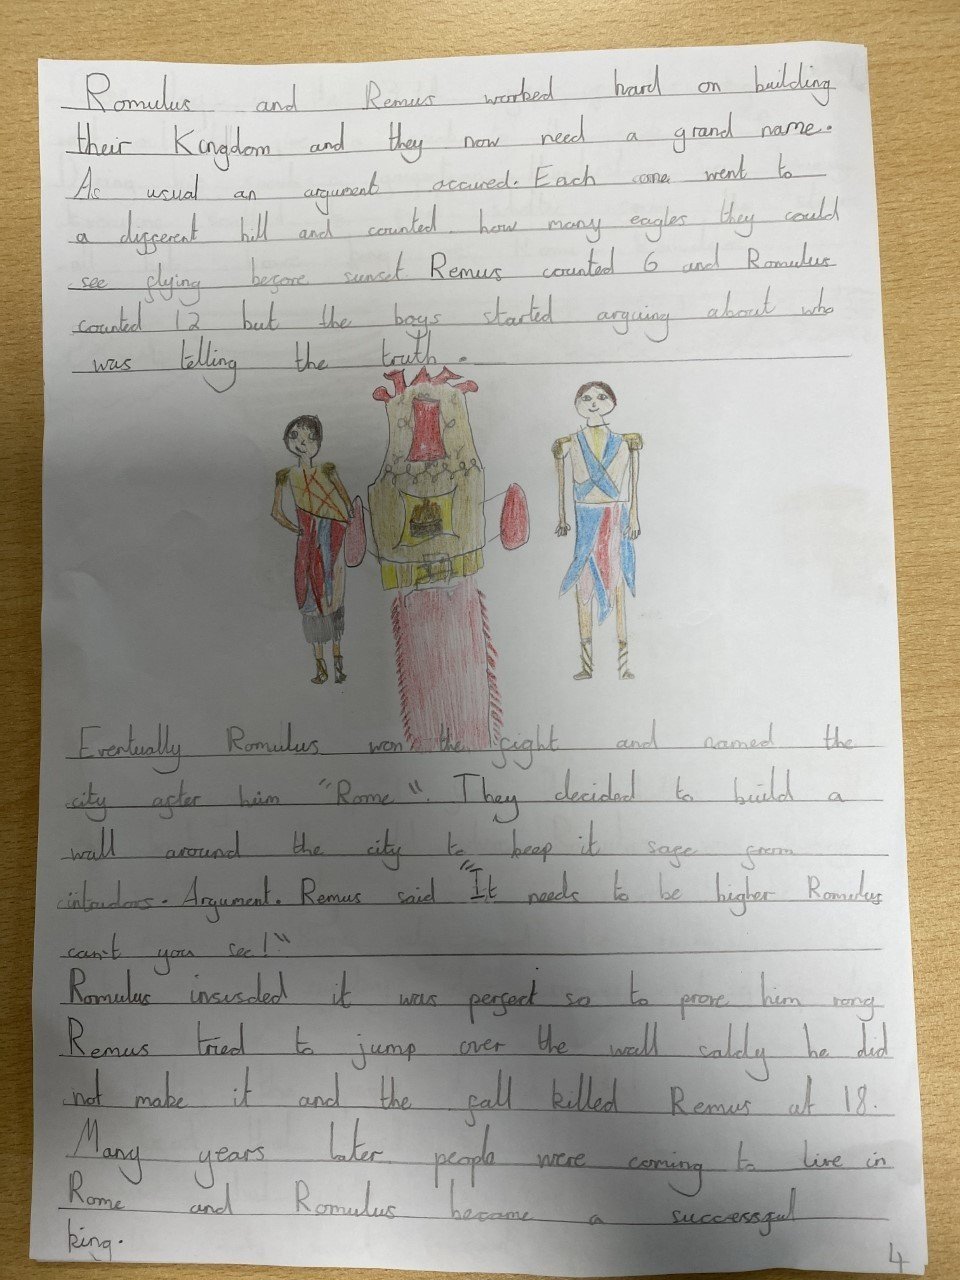 Romulus and Remus worked hard on building
their Kingdom and they now need a grand name.
As usual an argument occured. Each one went to
a different hill and counted how many eagles they could
see flying before sunset. Remus counted 6 and Romulus
counted 12 but the boys started arguing about who
was telling the truth.
Eventually Romulus won the fight and named the
city after him "Rome". They decided to build a
wall around the city to keep it safe from
intrudors. Argument. Remus said "It needs to be higher Romulus
can't you see!"
Romulus insisded it was perfect so to prove him rong
Remus tried to jump over the wall saldy he did
not make it and the fall killed Remus at 18.
Many years later people were coming to live in
Rome and Romulus became a successful
king.
4